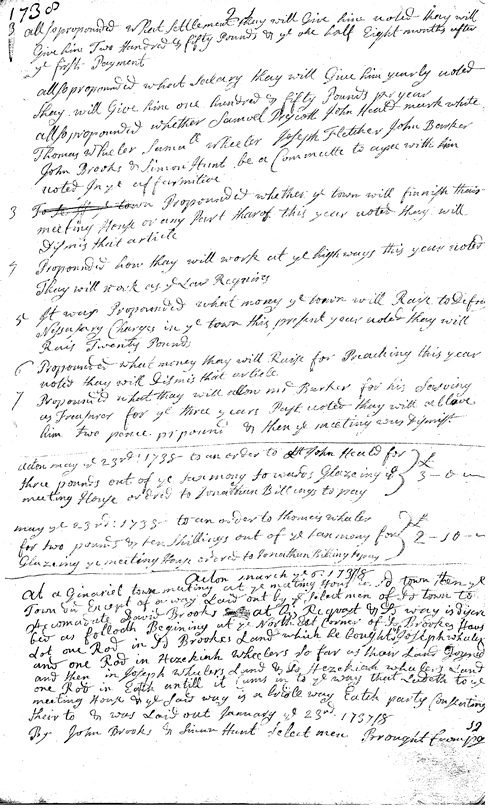 1738 21
3 allso propounded what settlement thay will Give him voted thay will
Give him Two Hundred & fifty Pounds & ye one half Eight months after
ye first Payment
allso propounded what Salary thay will Give him yearly voted
thay will Give him one hundred & fifty Pounds pr year
allso propounded whether Samuel Prescott John Heald mark white
Thomas Wheeler Samull wheeler Joseph Fletcher John Barker
John Brooks & Simon Hunt be a Committe to agree with him
voted In ye affirmitive
3 Propounded whether ye town will finnish thair
meeting House or any Part tharof this year voted thay will
Dismis that article
4 Propounded how thay will work at ye high ways this year voted
Thay will work as ye Law Requires
5 It was Propounded what money ye town will Raise to Defray
Nessasary Charges in ye town this present year voted thay will
Rais Twenty Pound
6 Propounded what money thay will Raise for Preaching this year
voted thay will Dismis that article
7 Propounded what thay will allow Barker for his Serving
as Treasuror for ye three years Past voted thay will allow
him two pence pr pound & then ye meeting was Dismist
acton may ye 23rd: 1738 to an order to John Heald for
three pounds out of ye money to wards Glazeing ye
meeting House ordred to Jonathan Billings to pay
£
3 - 0 -
may ye 23rd: 1738 to an order to thomas whaler
for two pounds & ten Shillings out of ye money for
Glazeing ye meeting House ordred to Jonathan Billing to pay
£
2 - 10 -
Acton march ye 1737/8
at a Ginaril town meeting at ye meeting House in sd town then ye
Town Except of a way Laid out by ye Select men of sd town to
David Brooks at Reqvast & sd way is
as folloeth Begining at ye North East corner of sd Brookes Hous
Lot one Rod in sd Brookes Land which he bought Joseph whealer
and one Rod in Hezekiah wheelers so far as thair Land Joyned
and then in Joseph Whelers Land & sd Hezekiah whalers Land
one Rod in Eath untill it runs in to ye way that Ledeth to ye
meeting House & ye said way is a bridle way Eatch party Consenting
theirto & was Laid out January ye 23rd. 1737/8
By John Brooks & Simon Hunt Select men Brought from pge